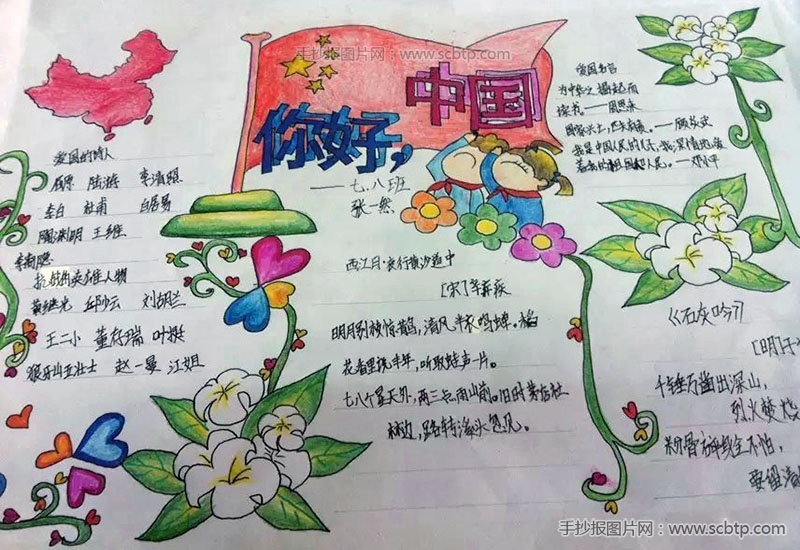 手抄报图片网：www.scbtp.com
你好，中国
——七.八班
张一然
爱国的诗人
屈原 陆游 李清照
李白 杜甫 白居易
陶渊明 王维
李商隐
抗战的英雄人物
黄继光 邱少云 刘胡兰
王二小 董存瑞 叶挺
狼牙山五壮士 赵一曼 江姐
西江月·夜行黄沙道中
[宋]辛弃疾
明月别枝惊鹊，清风半夜鸣蝉。稻
花香里说丰年，听取蛙声一片。
七八个星天外，两三点雨山前。旧时茅店社
林边，路转溪头忽见。
爱国名言
为中华之崛起而
读书。——周恩来
——顾炎武
我是中国人民的儿子，我深情地爱
着我的祖国和人民。——邓小平
《石灰吟》
[明]于
千锤万凿出深山，
烈火焚烧
粉骨碎身全不怕，
要留清
手抄报图片网：www.scbtp.com